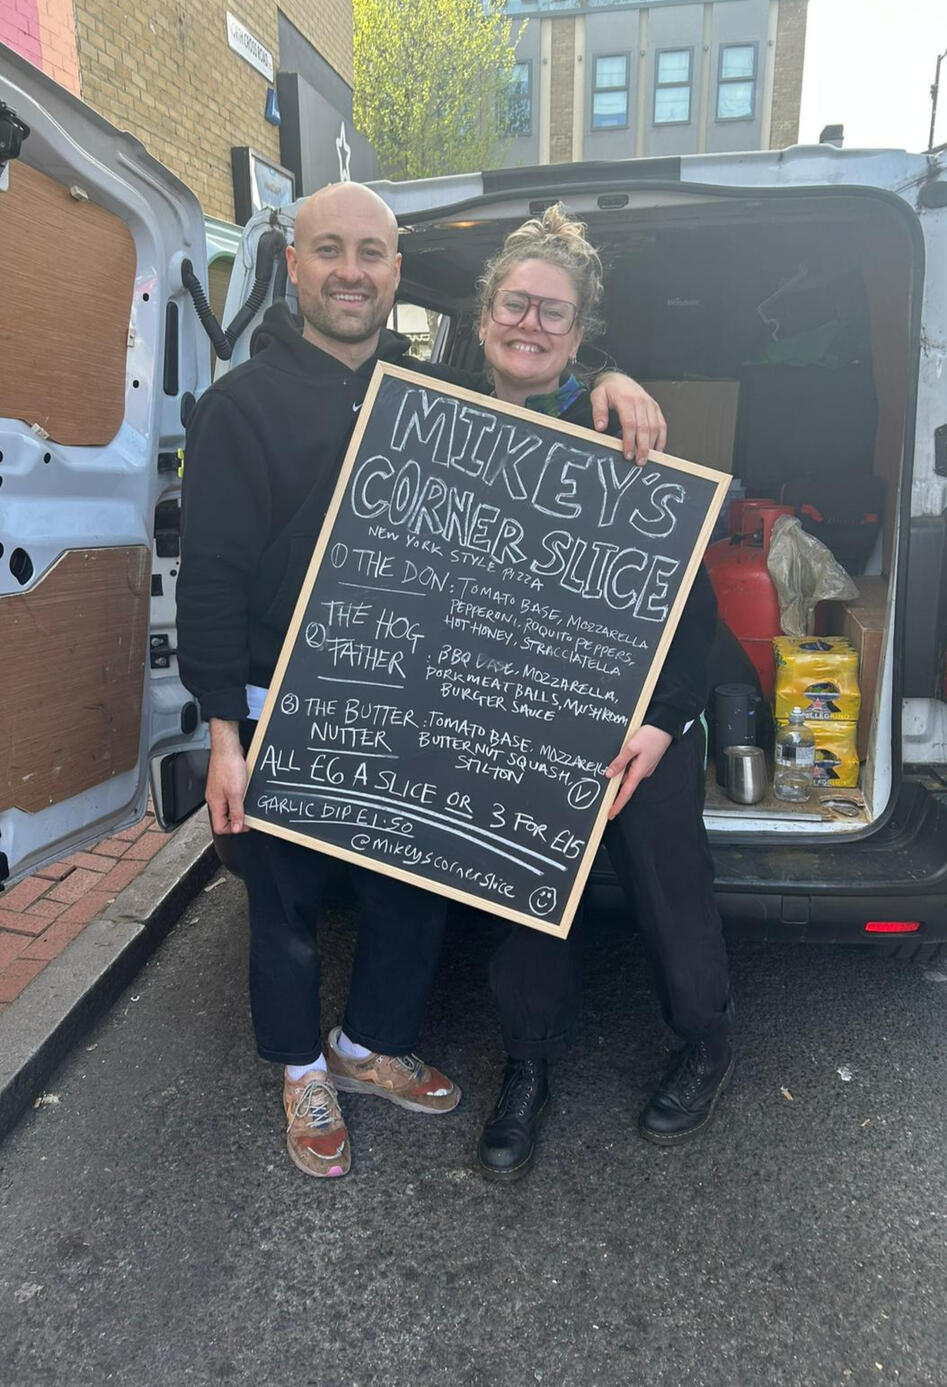 CROSS ROAD
MIKEY'S
CORNER SLICE
NEW YORK STYLE PIZZA
① THE DON: TOMATO BASE, MOZZARELLA
PEPPERONI, ROQUITO PEPPERS,
HOT HONEY, STRACCIATELLA
② THE HOG
FATHER
: BBQ BASE, MOZZARELLA,
PORK MEATBALLS, MUSHROOM
BURGER SAUCE
③ THE BUTTER
NUTTER
: TOMATO BASE, MOZZARELLA
BUTTERNUT SQUASH,
STILTON Ⓥ
ALL £6 A SLICE OR 3 FOR £15
GARLIC DIP £1.50
@mikeyscornerslice
PELLEGRINO